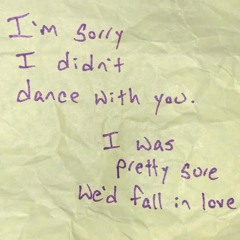 I'm sorry
I didn't
dance with you.
I was
pretty sure
We'd fall in love